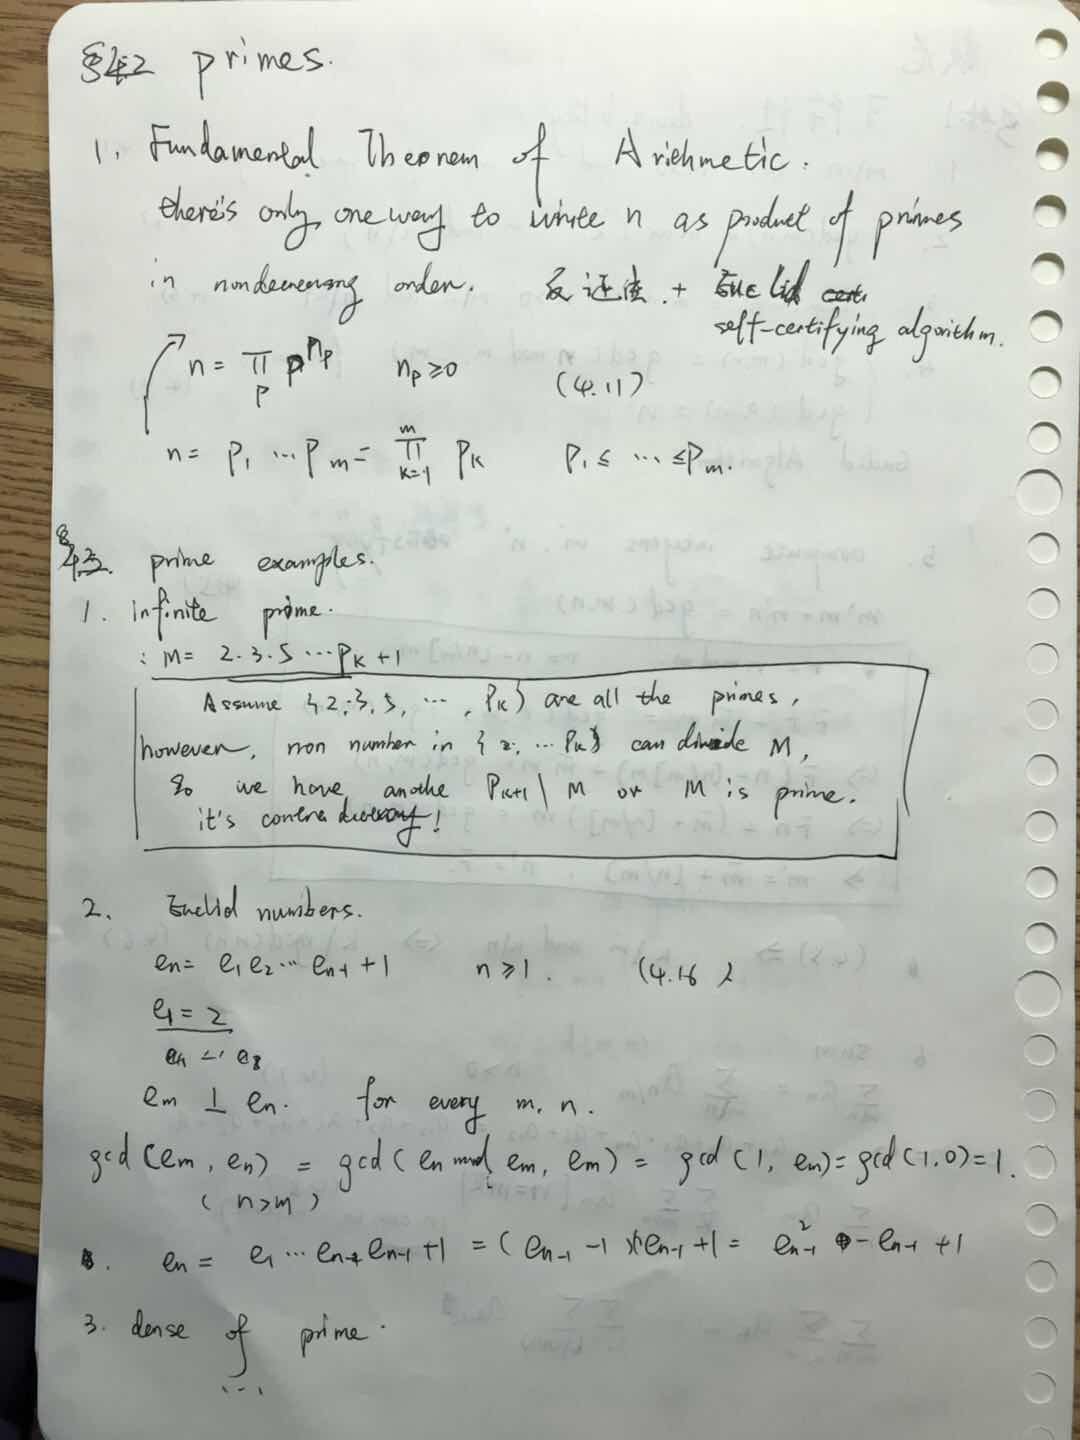 §4.2 primes.
1. Fundamental Theorem of Arithmetic.
there's only one way to write n as product of primes
in nondecreasing order. 反证法 + Euclid
self-certifying algorithm.
n = ∏_p p^{n_p} n_p ≥ 0 (4.11)
n = P_1 ⋯ P_m = ∏_{k=1}^{m} P_k P_1 ≤ ⋯ ≤ P_m.
§4.3. prime examples.
1. infinite prime.
: M = 2·3·5 ⋯ P_k + 1
Assume {2, 3, 5, ⋯, P_k} are all the primes,
however, non number in {2, ⋯ P_k} can divide M,
So we have anothe P_{k+1} \ M or M is prime.
it's contradictory!
2. Euclid numbers.
e_n = e_1 e_2 ⋯ e_{n-1} + 1 n ≥ 1. (4.16)
e_1 = 2
e_m ⊥ e_n. for every m, n.
gcd(e_m, e_n) = gcd(e_n mod e_m, e_m) = gcd(1, e_m) = gcd(1, 0) = 1.
(n > m)
e_n = e_1 ⋯ e_{n-2} e_{n-1} + 1 = (e_{n-1} - 1) e_{n-1} + 1 = e_{n-1}^2 - e_{n-1} + 1
3. dense of prime.
⋯